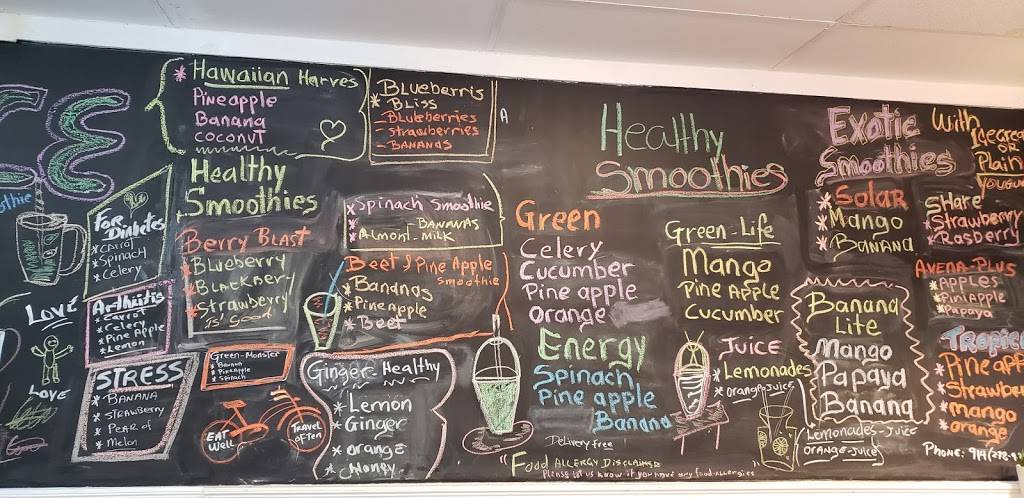 * Hawaiian Harves
Pineapple
Banana
coconut
Blueberris
* Bliss
- Blueberries
- Strawberries
- Bananas
For Diabetes
* Carrot
* Spinach
* Celery
Healthy
Smoothies
Berry Blast
* Blueberry
* Blackbery
* Strawberry
is good
* Spinach Smoothie
* Bananas
* Almont-milk
Beet & Pine Apple
smoothie
* Bananas
* Pineapple
* Beet
Love
Love
Arthritis
* Carrot
* Celery
* Pine Apple
* Lemon
STRESS
* Banana
* Strawberry
* Pear of
* Melon
Green-Monster
* Banana
* Pineapple
* Spinach
Eat
Well
Travel
often
Ginger-Healthy
* Lemon
* Ginger
* orange
* Honey
Healthy
Smoothies
Green
Celery
Cucumber
Pine apple
orange
Energy
Spinach
Pine apple
Banana
Delivery free
Green-Life
Mango
Pine Apple
Cucumber
Juice
* Lemonades
* orange-Juice
"Food Allergy Disclaimer
Please let us know if you have any food allergies"
Exotic
Smoothies
With
Icecream
or
Plain
* Solar
* Mango
* Banana
Share
* Strawberry
* Rasberry
Banana
Lite
Mango
Papaya
Banana
Lemonades-Juice
orange-Juice
Avena-Plus
* Apples
* PiniApple
* Papaya
* Strawber
* mango
* orange
Phone: 914